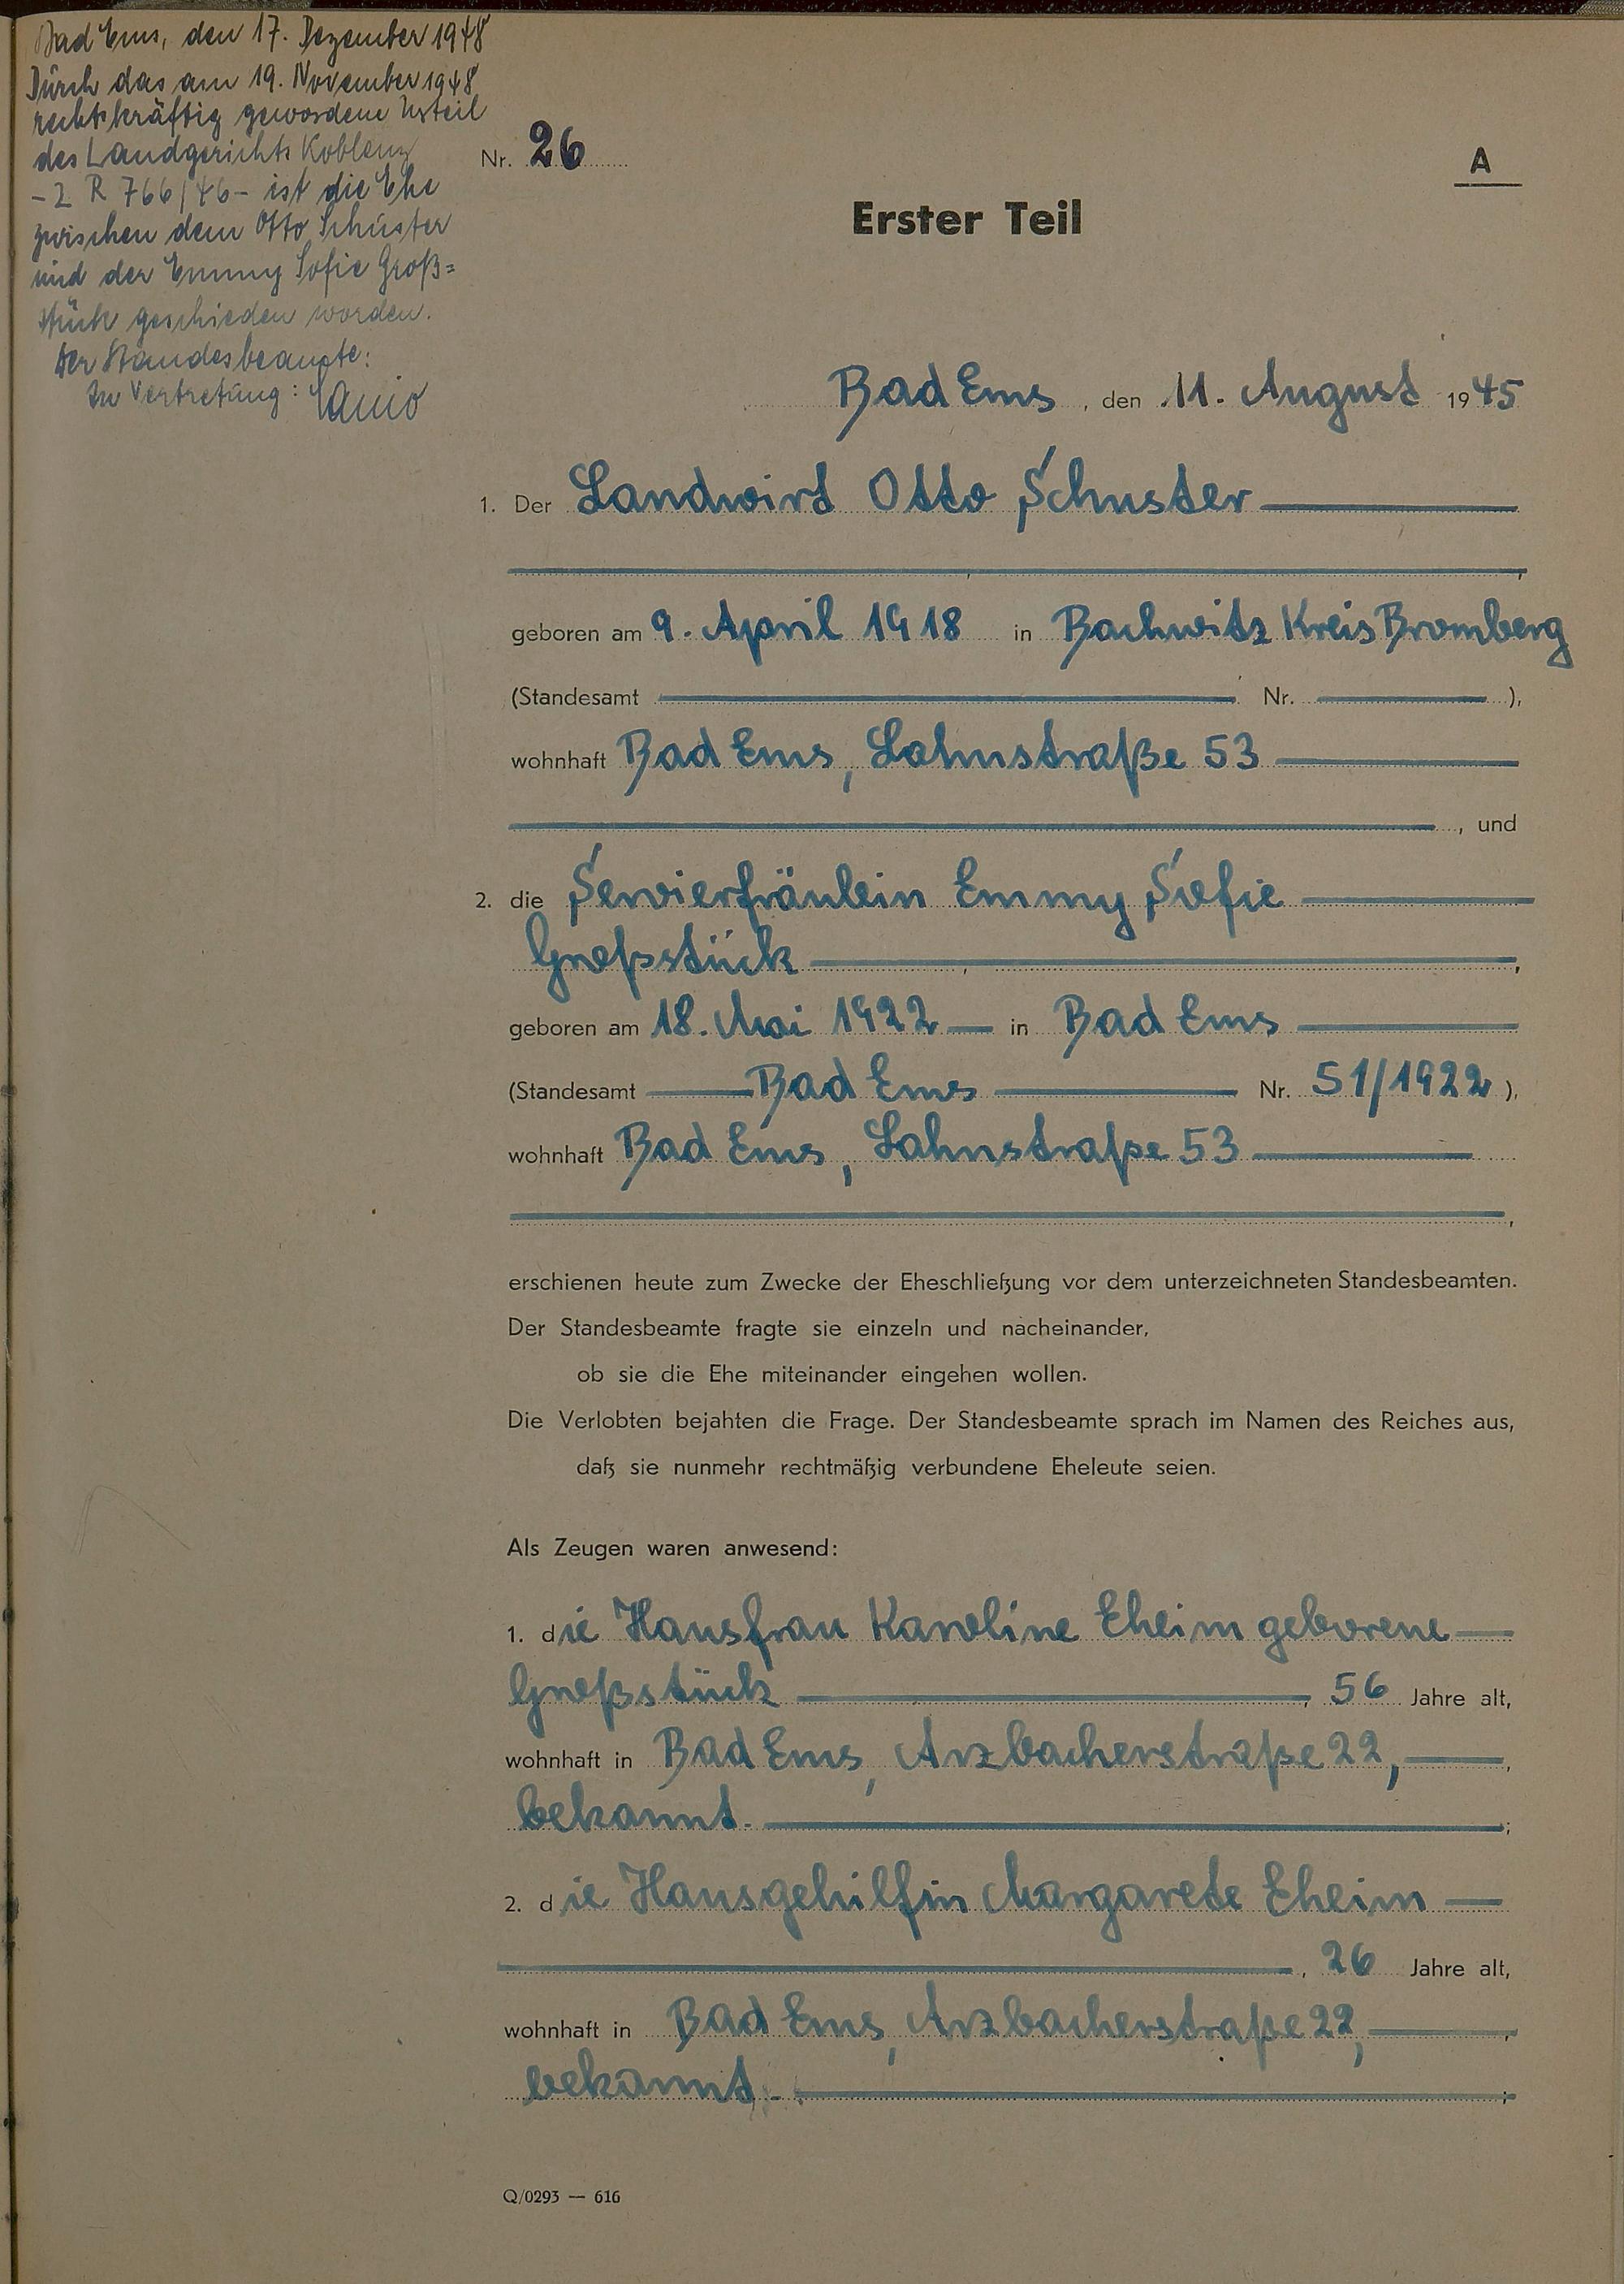 Bad Ems, den 17. Dezember 1948
Durch das am 19. November 1948
rechtskräftig gewordene Urteil
des Landgerichts Koblenz
-2 R 766/46- ist die Ehe
zwischen dem Otto Schuster
und der Emmy Sofie Groß=
stück geschieden worden.
Der Standesbeamte:
In Vertretung:
Nr. 26
A
Erster Teil
Bad Ems, den 11. August 1945
1. Der Landwirt Otto Schuster
,
geboren am 9. April 1918 in Bachwitz Kreis Bromberg
(Standesamt Nr. ),
wohnhaft Bad Ems, Lahnstraße 53
, und
2. die Servierfräulein Emmy Sofie
Großstück,
geboren am 18. Mai 1922 in Bad Ems
(Standesamt Bad Ems Nr. 51/1922),
wohnhaft Bad Ems, Lahnstraße 53
,
erschienen heute zum Zwecke der Eheschließung vor dem unterzeichneten Standesbeamten.
Der Standesbeamte fragte sie einzeln und nacheinander,
ob sie die Ehe miteinander eingehen wollen.
Die Verlobten bejahten die Frage. Der Standesbeamte sprach im Namen des Reiches aus,
daß sie nunmehr rechtmäßig verbundene Eheleute seien.
Als Zeugen waren anwesend:
1. die Hausfrau Karoline Eheim geborene
Großstück, 56 Jahre alt,
wohnhaft in Bad Ems, Arzbacherstraße 22,
bekannt. ;
2. die Hausgehilfin Margarete Eheim
, 26 Jahre alt,
wohnhaft in Bad Ems, Arzbacherstraße 22,
bekannt. ;
Q/0293 — 616